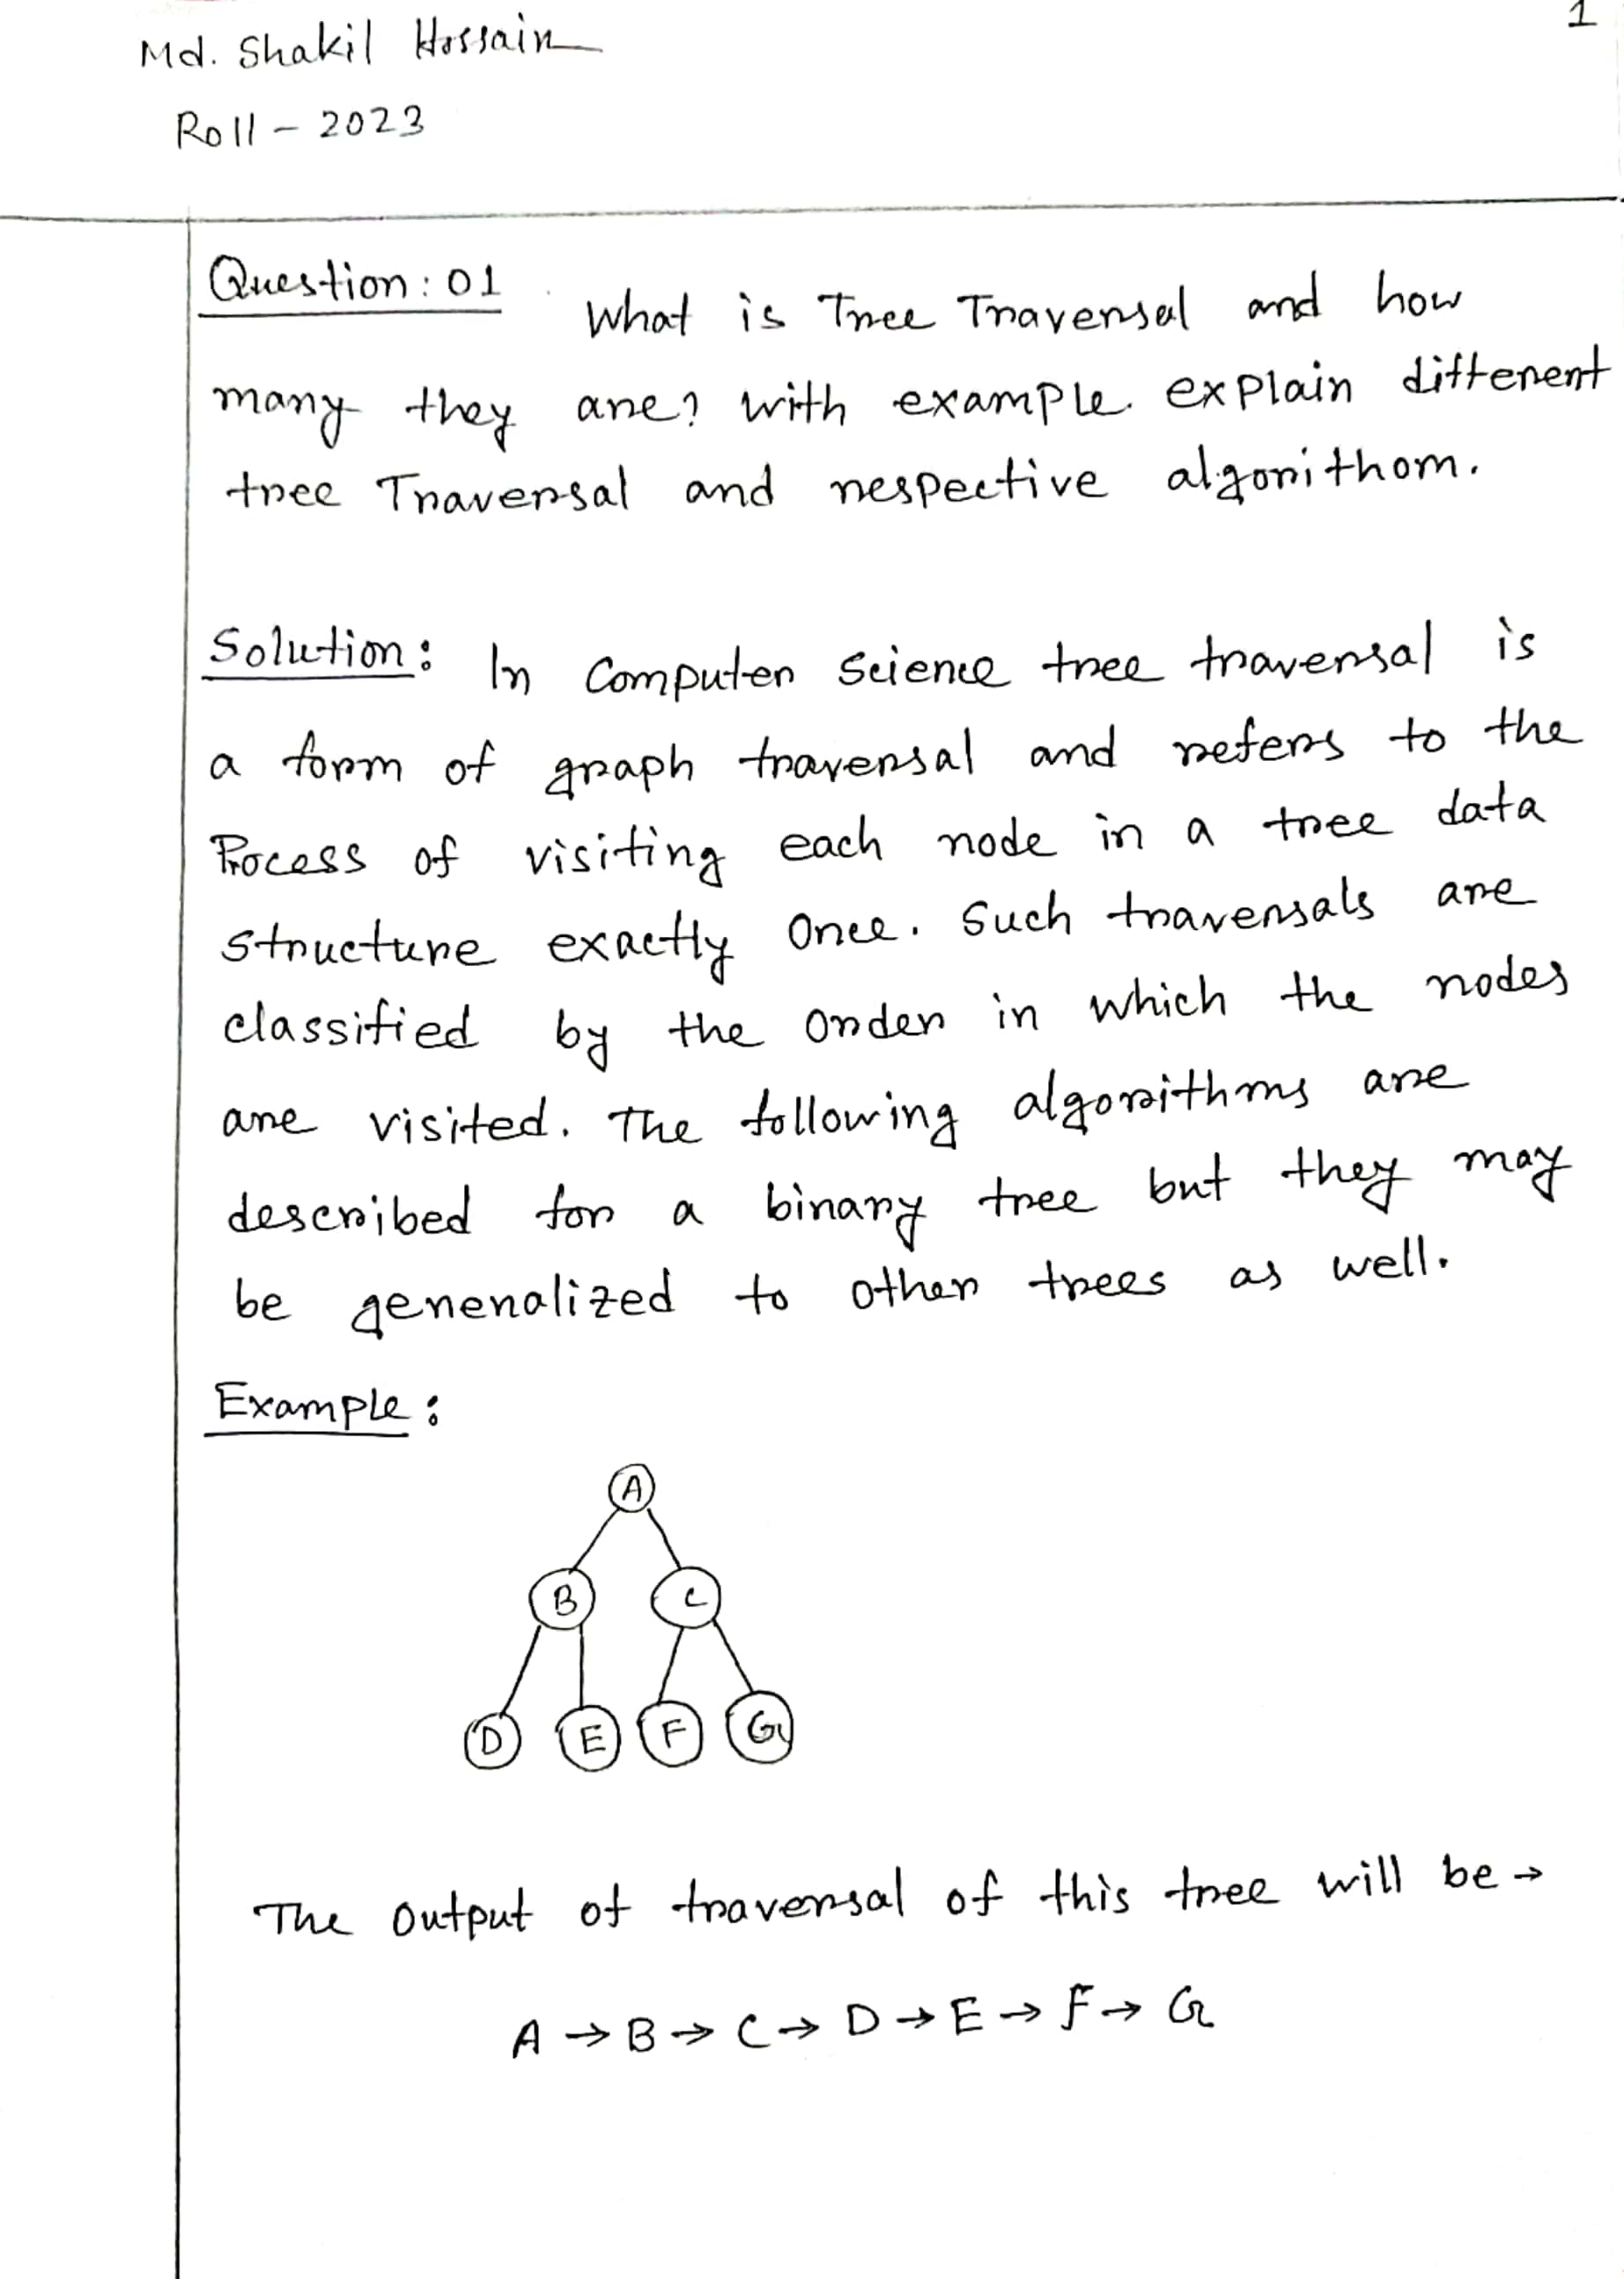 1
Md. Shakil Hossain
Roll - 2023
Question: 01 What is Tree Traversal and how
many they are? with example. explain different
tree Traversal and respective algorithom.
Solution: In Computer Science tree traversal is
a form of graph traversal and refers to the
Process of visiting each node in a tree data
structure exactly once. Such traversals are
classified by the order in which the nodes
are visited. The following algorithms are
described for a binary tree but they may
be generalized to other trees as well.
Example:
A
B C
D E F G
The output of traversal of this tree will be →
A → B → C → D → E → F → G